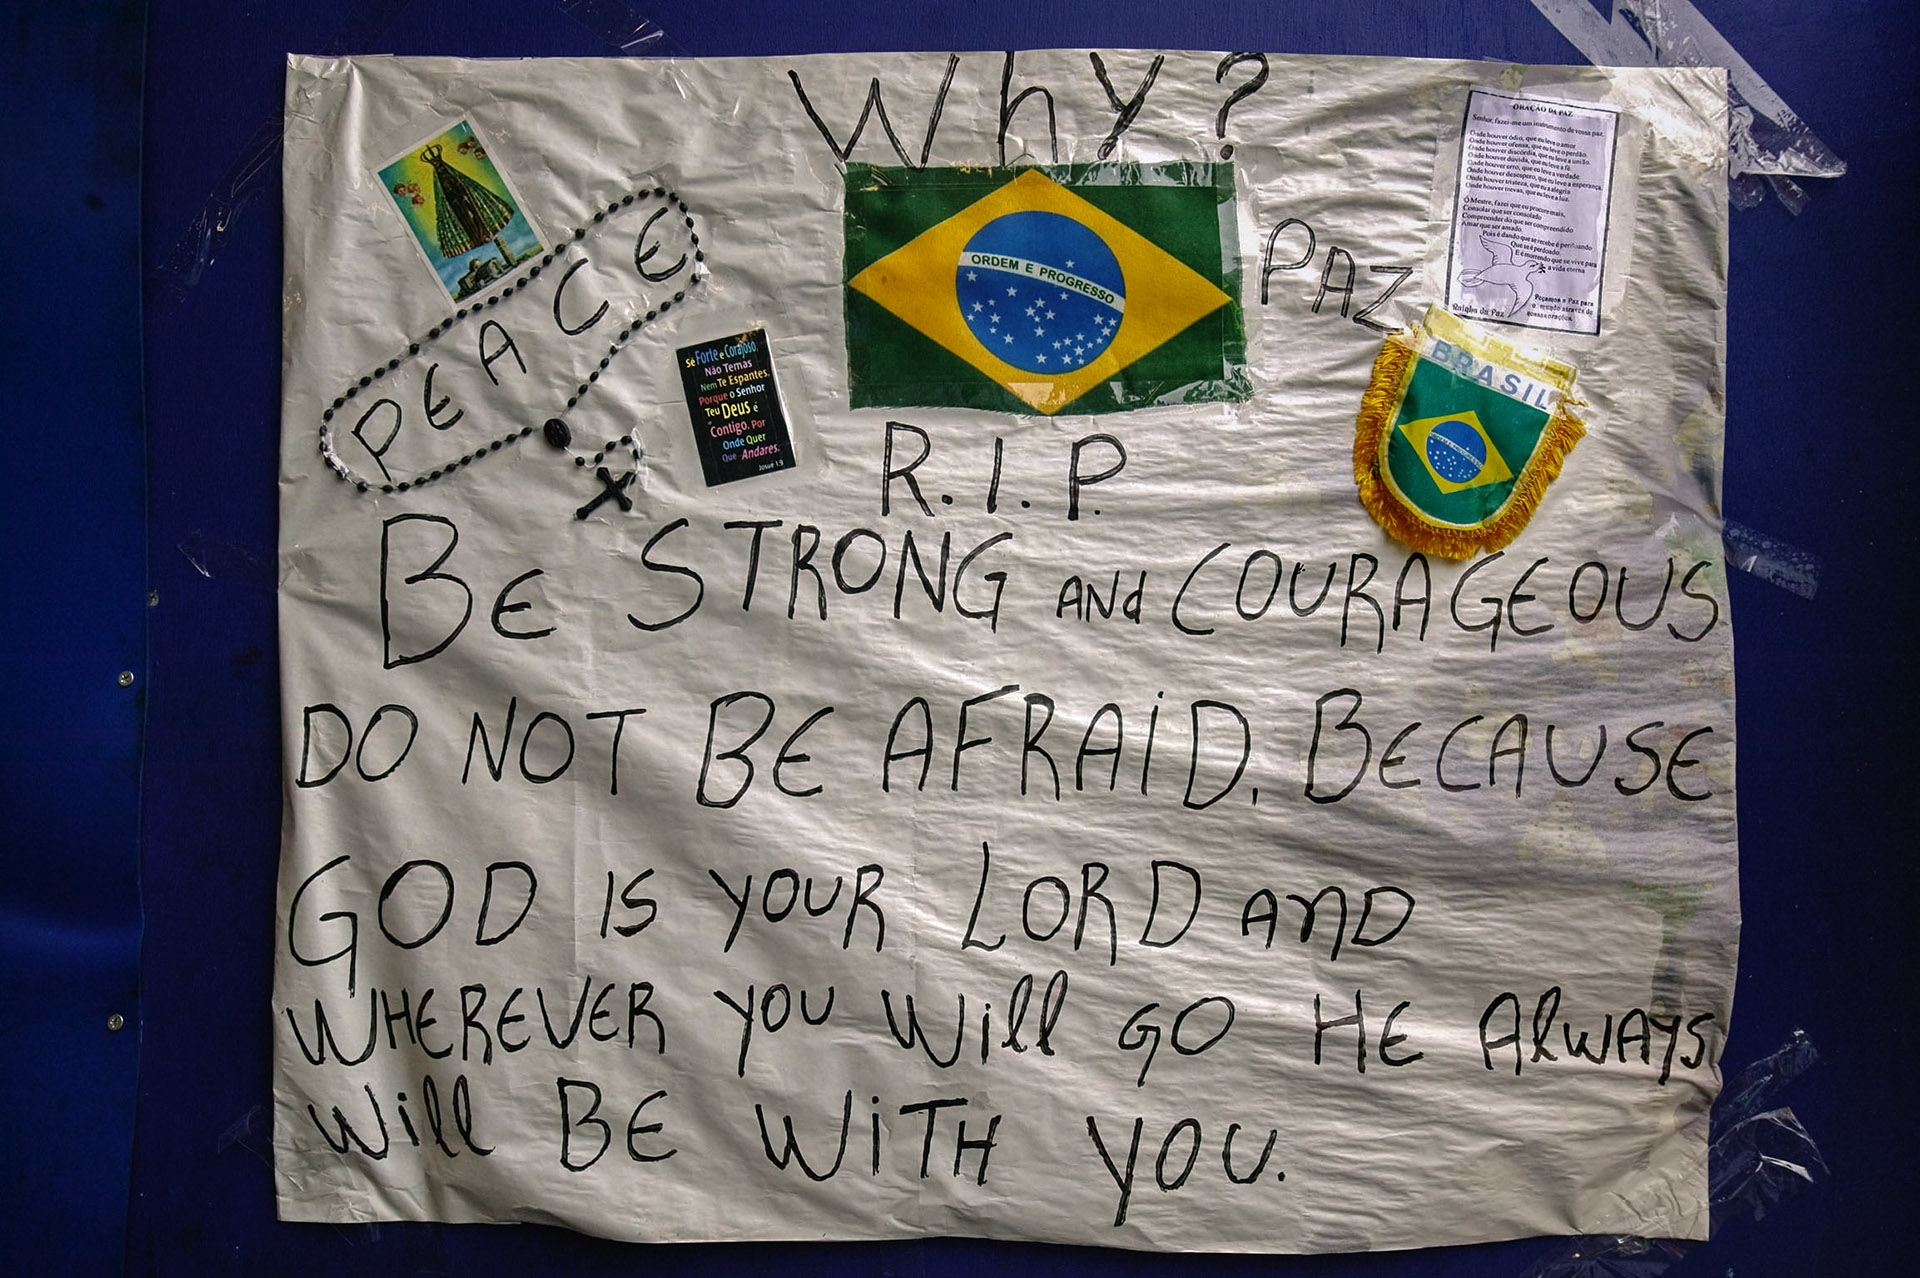 Why?
ORAÇÃO DA PAZ
Senhor, fazei-me um instrumento de vossa paz.
Onde houver ódio, que eu leve o amor.
Onde houver ofensa, que eu leve o perdão.
Onde houver discórdia, que eu leve a união.
Onde houver dúvida, que eu leve a fé.
Onde houver erro, que eu leve a verdade.
Onde houver desespero, que eu leve a esperança.
Onde houver tristeza, que eu leve a alegria.
Onde houver trevas, que eu leve a luz.
Ó Mestre, fazei que eu procure mais,
Consolar que ser consolado
Compreender do que ser compreendido
Amar que ser amado.
Pois é dando que se recebe é perdoando
Que se é perdoado
E é morrendo que se vive para
a vida eterna
Rainha da Paz
Peçamos a Paz para
o mundo através de
nossas orações.
PEACE
ORDEM E PROGRESSO
PAZ
BRASIL
Sê Forte e Corajoso.
Não Temas
Nem Te Espantes,
Porque o Senhor
Teu Deus é
Contigo, Por
Onde Quer
Que Andares.
Josué 1:9
R.I.P.
BE STRONG AND COURAGEOUS
DO NOT BE AFRAID. BECAUSE
GOD IS YOUR LORD AND
WHEREVER YOU Will GO HE AlWAYS
Will BE WiTH YOU.